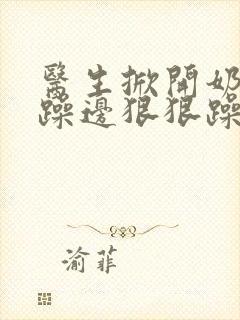 醫生掀開奶
躁邊狠狠躁
渝菲